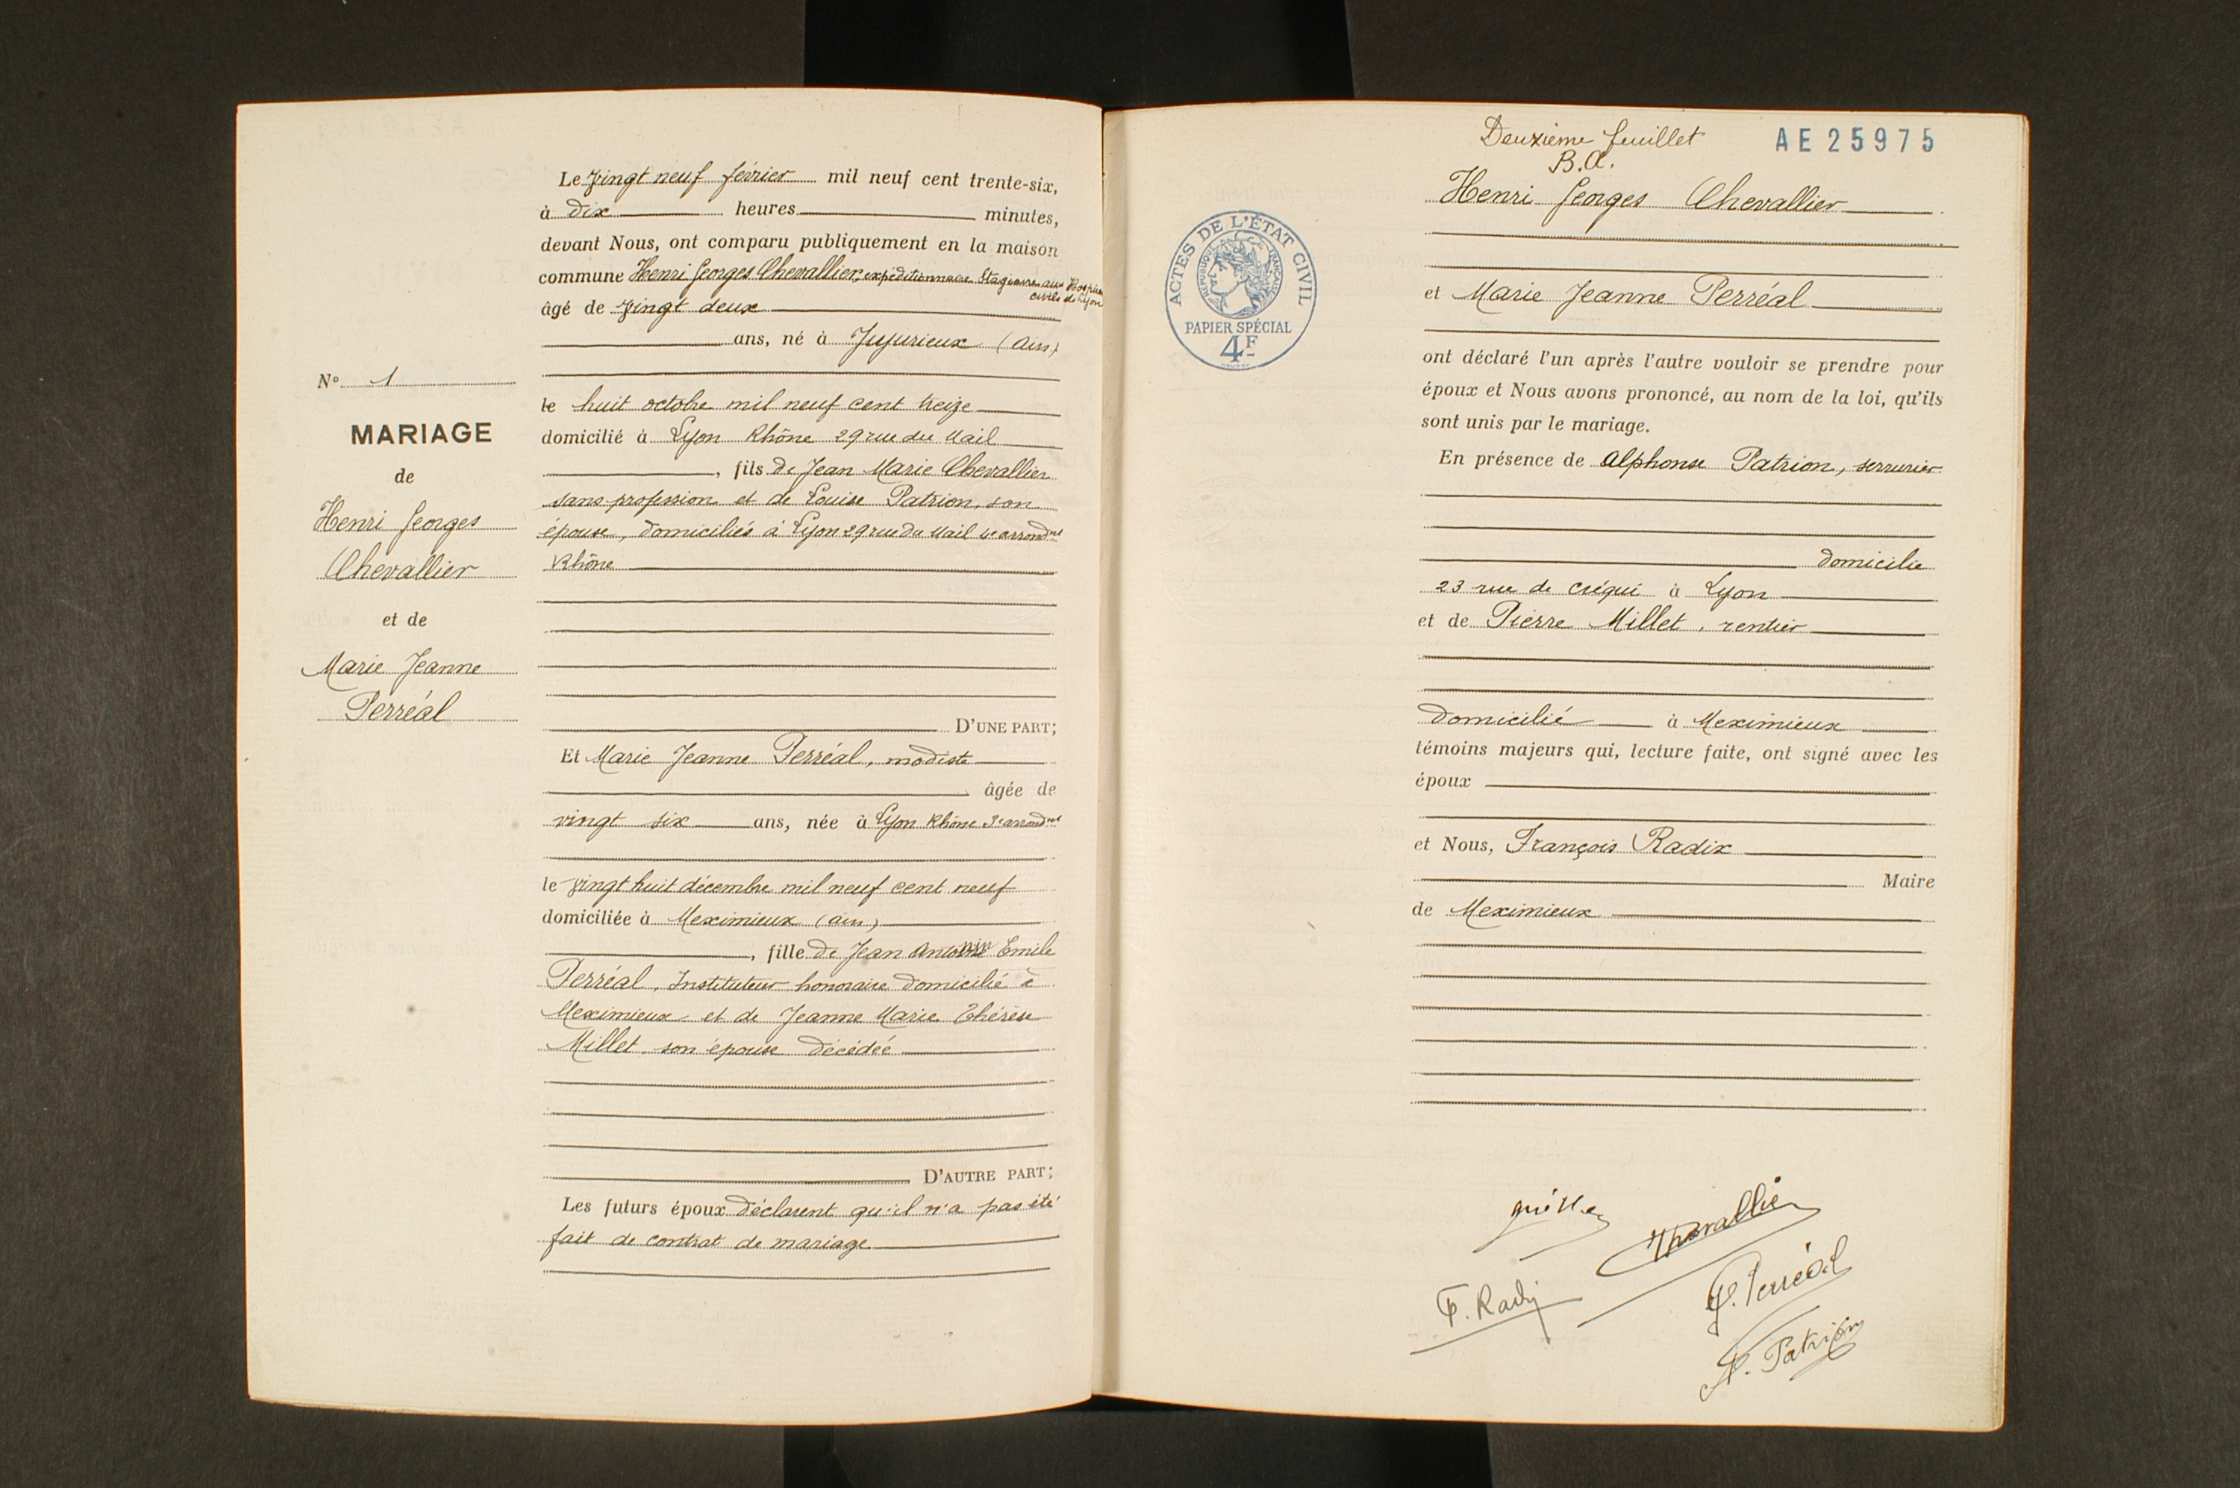 Le vingt neuf février mil neuf cent trente-six,
à dix heures minutes,
devant Nous, ont comparu publiquement en la maison
commune Henri Georges Chevallier, expéditionnaire stagiaire aux Hospices
civils de Lyon
âgé de vingt deux
ans, né à Jujurieux (Ain)
le huit octobre mil neuf cent treize
domicilié à Lyon Rhône 29 rue du Mail
, fils de Jean Marie Chevallier
sans profession et de Louise Patrion, son
épouse, domiciliés à Lyon 29 rue du Mail 4e arrondnt
Rhône
D'UNE PART;
Et Marie Jeanne Perréal, modiste
âgée de
vingt six ans, née à Lyon Rhône 3e arrondnt
le vingt huit décembre mil neuf cent neuf
domiciliée à Meximieux (Ain)
, fille de Jean Antonin Emile
Perréal, Instituteur honoraire domicilié à
Meximieux et de Jeanne Marie Thérèse
Millet son épouse décédée
D'AUTRE PART;
Les futurs époux déclarent qu'il n'a pas été
fait de contrat de mariage
N° 1
MARIAGE
de
Henri Georges
Chevallier
et de
Marie Jeanne
Perréal
Deuxième feuillet
AE25975
B.A.
Henri Georges Chevallier
et Marie Jeanne Perréal
ont déclaré l'un après l'autre vouloir se prendre pour
époux et Nous avons prononcé, au nom de la loi, qu'ils
sont unis par le mariage.
En présence de Alphonse Patrion, serrurier
domicilié
23 rue de créqui à Lyon
et de Pierre Millet, rentier
domicilié à Meximieux
témoins majeurs qui, lecture faite, ont signé avec les
époux
et Nous, François Radix
Maire
de Meximieux
ACTES DE L'ÉTAT CIVIL
RÉPUBLIQUE FRANÇAISE
PAPIER SPÉCIAL
4F
Chevallier
F. Radix
J. Perréal
A. Patrion